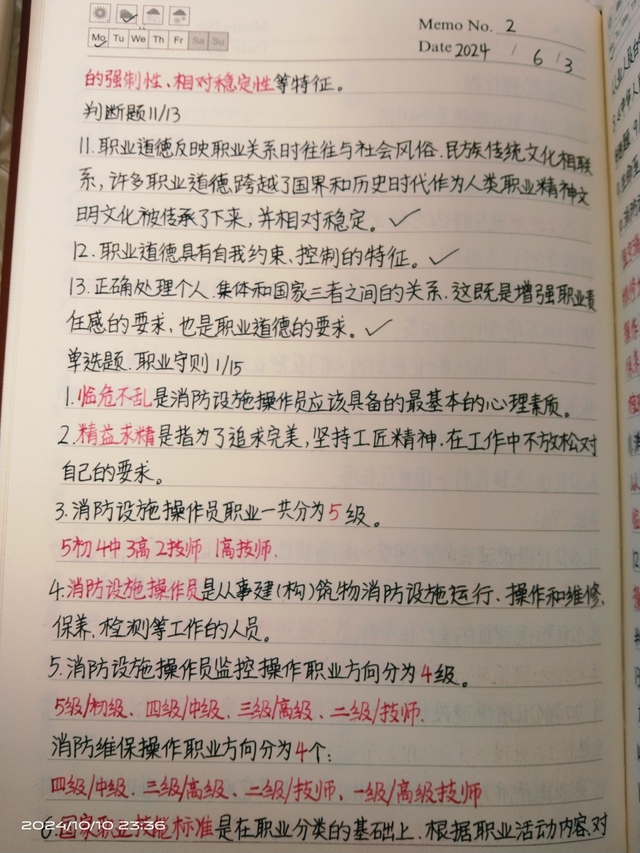 Memo No. 2
Mo Tu We Th Fr Sa Su
Date 2024 / 6 / 3
的强制性、相对稳定性等特征。
判断题11/13
11.职业道德反映职业关系时往往与社会风俗.民族传统文化相联
系,许多职业道德跨越了国界和历史时代作为人类职业精神文
明文化被传承了下来,并相对稳定。✓
12.职业道德具有自我约束、控制的特征。✓
13.正确处理个人.集体和国家三者之间的关系.这既是增强职业责
任感的要求,也是职业道德的要求。✓
单选题.职业守则1/15
1.临危不乱是消防设施操作员应该具备的最基本的心理素质。
2.精益求精是指为了追求完美,坚持工匠精神.在工作中不放松对
自己的要求。
3.消防设施操作员职业一共分为5级。
5初4中3高2技师 1高技师.
4.消防设施操作员是从事建(构)筑物消防设施运行、操作和维修、
保养、检测等工作的人员。
5.消防设施操作员监控操作职业方向分为4级。
5级/初级、四级/中级、三级/高级、二级/技师.
消防维保操作职业方向分为4个:
四级/中级、三级/高级、二级/技师、一级/高级技师
6.国家职业技能标准是在职业分类的基础上.根据职业活动内容、对
2024/10/10 23:36